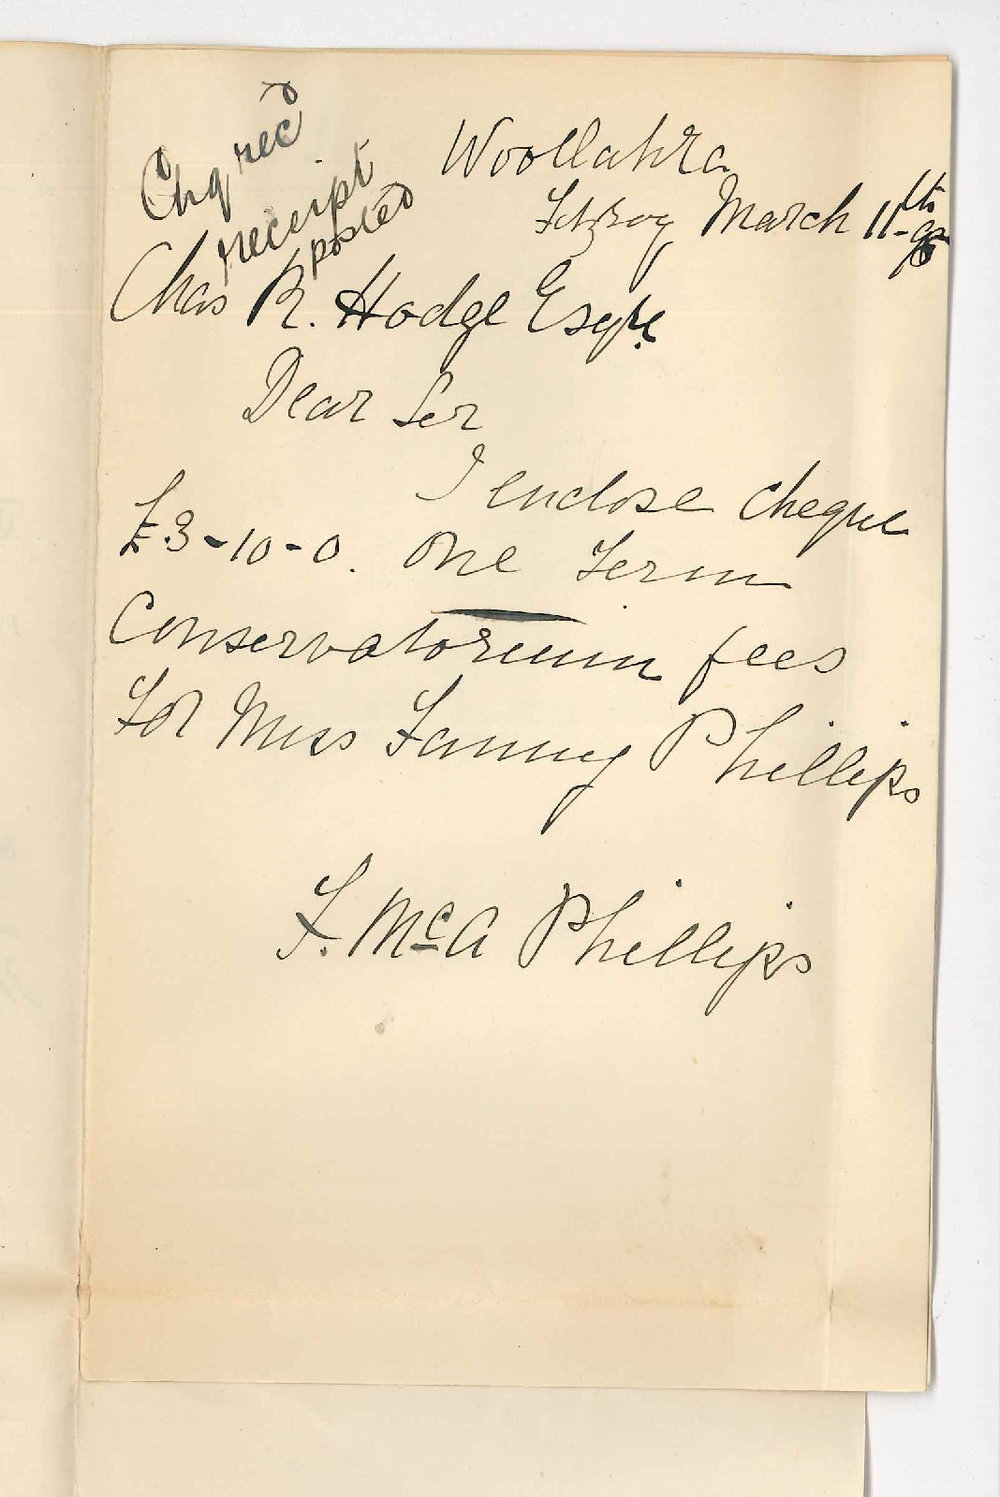 Chq recd
receipt
posted
Woollahra
Fitzroy March 11th
Chas R. Hodge Esqre
Dear Sir
I enclose cheque
£3-10-0. One Term
Conservatorium fees
For Miss Fanny Phillips
F. McA Phillips